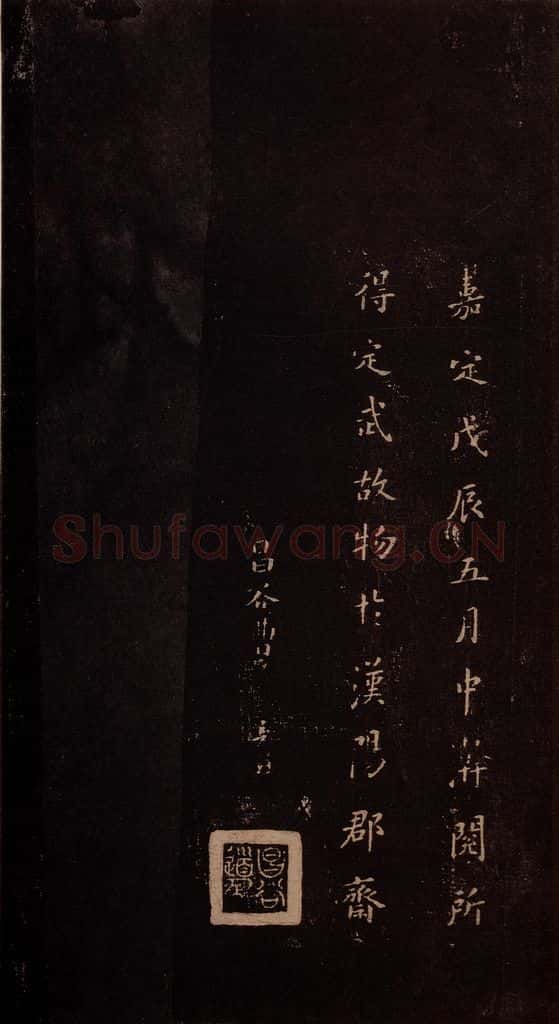 嘉定戊辰五月中澣閱所
得定武故物於漢陽郡齋
昌谷曹
昌谷
Shufawang.CN